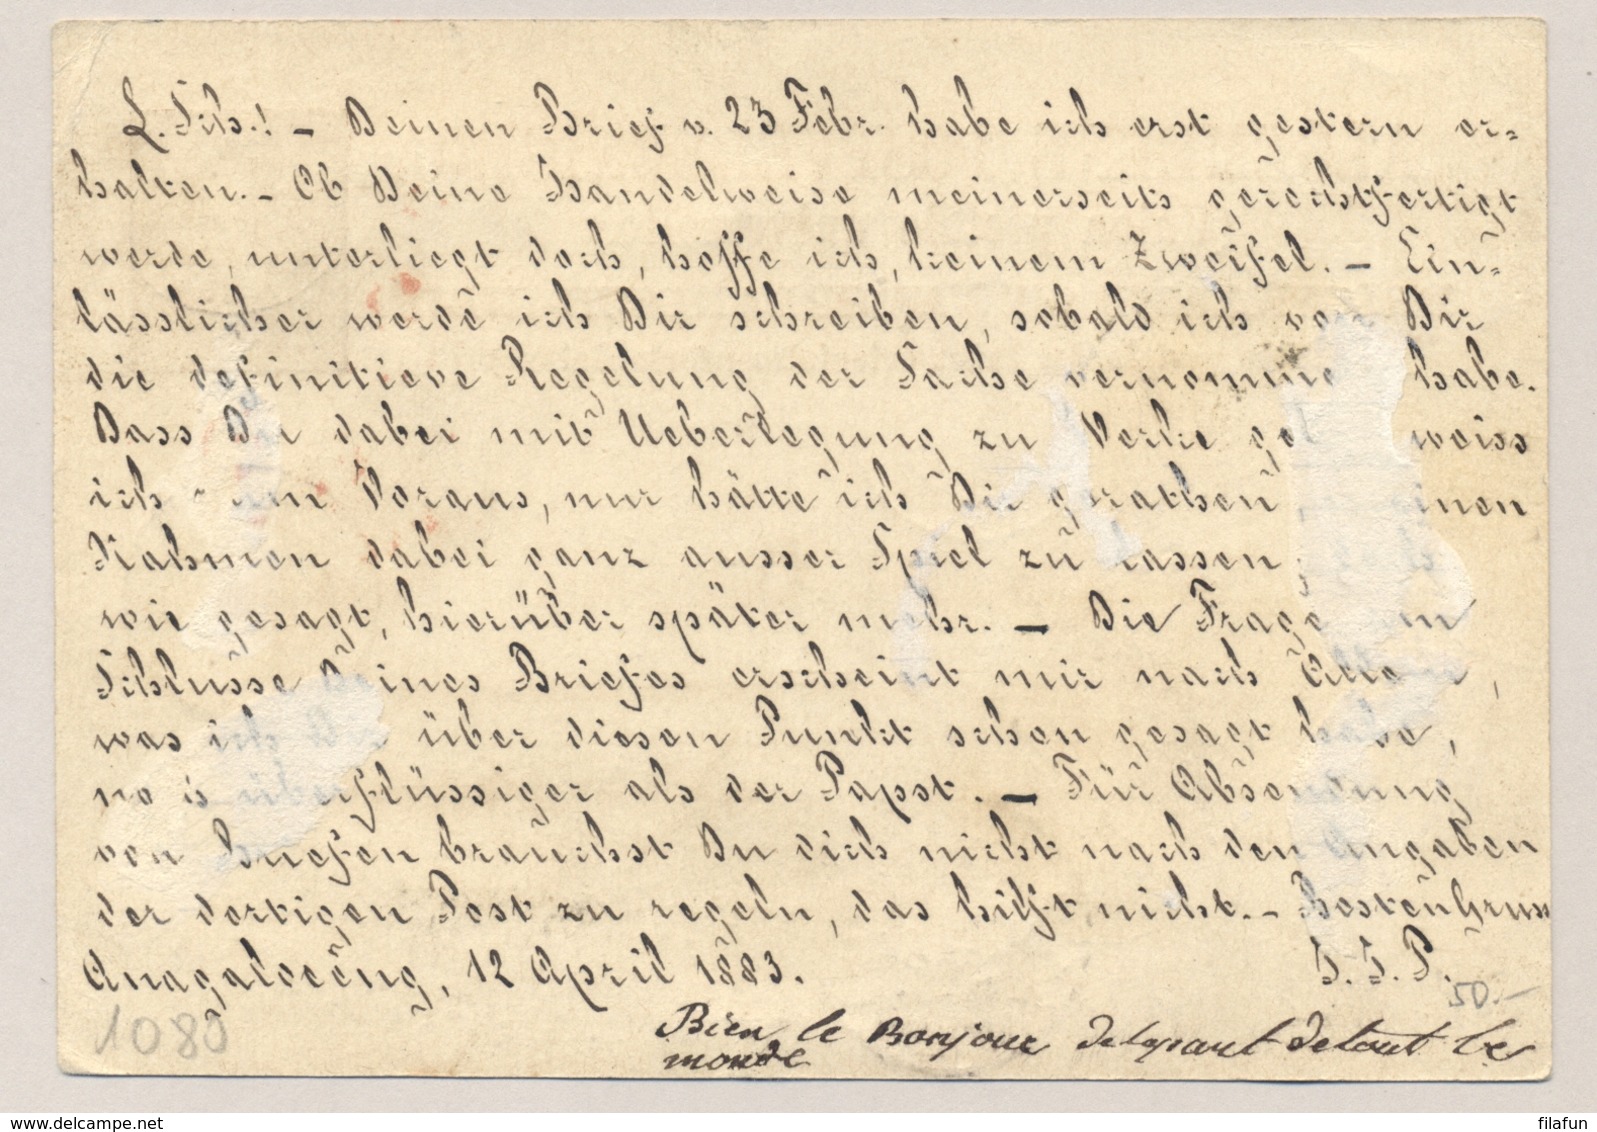 L. Sch.! - Deinen Brief v. 23 Febr. habe ich erst gestern er=
halten. - Ob Deine Handelweise meinerseits gerechtfertigt
werde, unterliegt doch, hoffe ich, keinem Zweifel. - Ein=
lässlicher werde ich Dir schreiben, sobald ich von Dir
die definitieve Regelung der Sache vernommen habe.
Dass Du dabei mit Ueberlegung zu Werke weiss
ich Voraus, nur hätte ich Dir gerathen,
Namen dabei ganz ausser Spiel zu lassen
wie gesagt, hierüber später mehr. - Die Frage
Schlusse Deines Briefes erscheint mir nach Allem,
was ich Dir über diesen Punkt schon gesagt habe,
no überflüssiger als der Papst. - Für Absendung
von Briefen brauchst Du dich nicht nach den Angaben
der dortigen Post zu regeln, das hilft nicht. - Bestengruss
Anagaloeëng, 12 April 1883. J. J. P.
50.-
1080
Bien le Bonjour de tout les
monde
filafun